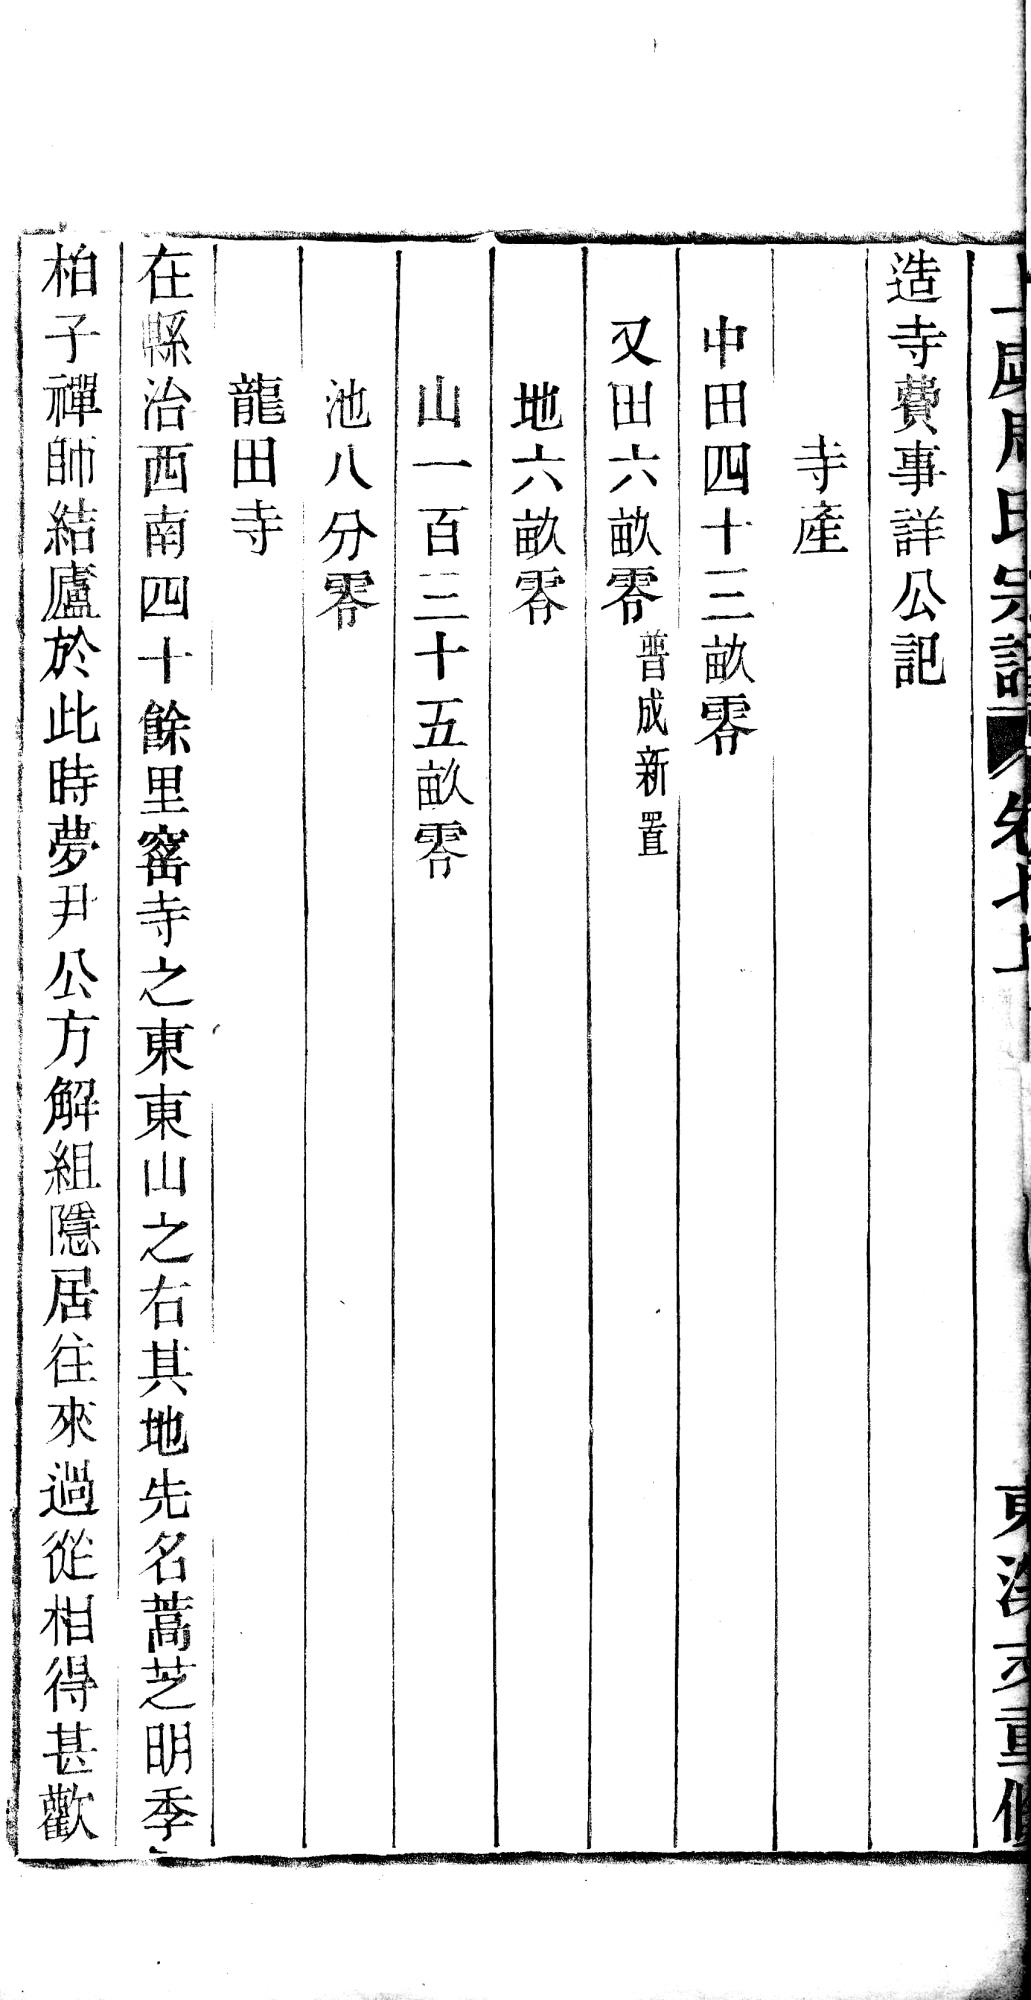 周氏宗譜 卷七上 東 重修
造寺費事詳公記
寺產
中田四十三畝零
又田六畝零普成新置
地六畝零
山一百三十五畝零
池八分零
龍田寺
在縣治西南四十餘里窰寺之東東山之右其地先名蒿芝明季
柏子禪師結廬於此時夢尹公方解組隱居往來過從相得甚歡